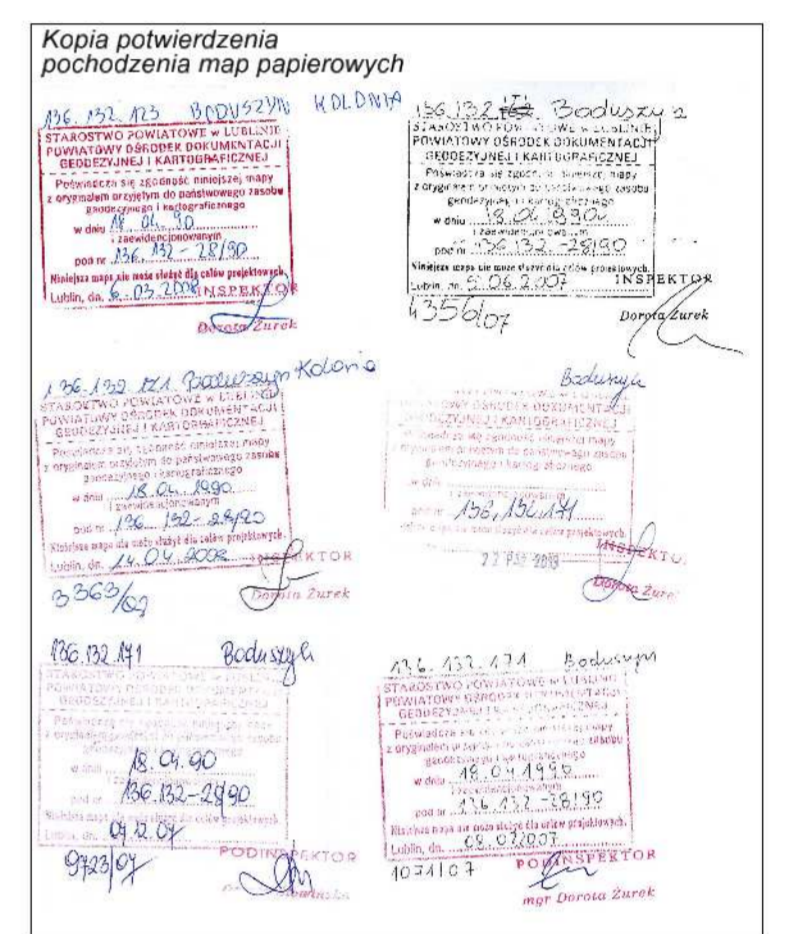 Kopia potwierdzenia
pochodzenia map papierowych
136.132.123 BODUSZYN KOLONIA
STAROSTWO POWIATOWE w LUBLINIE
POWIATOWY OŚRODEK DOKUMENTACJI
GEODEZYJNEJ I KARTOGRAFICZNEJ
Poświadcza się zgodność niniejszej mapy
z oryginałem przyjętym do państwowego zasobu
geodezyjnego i kartograficznego
w dniu 18.04.90
i zaewidencjonowanym
pod nr 136.132-28/90
Niniejsza mapa nie może służyć dla celów projektowych.
Lublin, dn. 6.03.2008 INSPEKTOR
Dorota Żurek
136.132 171 Boduszyn
STAROSTWO POWIATOWE w LUBLINIE
POWIATOWY OŚRODEK DOKUMENTACJI
GEODEZYJNEJ I KARTOGRAFICZNEJ
Poświadcza się zgodność niniejszej mapy
z oryginałem przyjętym do państwowego zasobu
geodezyjnego i kartograficznego
w dniu 18.04.1990r
i zaewidencjonowanym
pod nr 136.132-28/90
Niniejsza mapa nie może służyć dla celów projektowych.
Lublin, dn. 5.06.2007 INSPEKTOR
4356/07
Dorota Żurek
136.132.171 Boduszyn Kolonia
STAROSTWO POWIATOWE w LUBLINIE
POWIATOWY OŚRODEK DOKUMENTACJI
GEODEZYJNEJ I KARTOGRAFICZNEJ
Poświadcza się zgodność niniejszej mapy
z oryginałem przyjętym do państwowego zasobu
geodezyjnego i kartograficznego
w dniu 18.04.1990
i zaewidencjonowanym
pod nr 136.132-28/90
Niniejsza mapa nie może służyć dla celów projektowych.
Lublin, dn. 14.04.2008 INSPEKTOR
Dorota Żurek
Boduszyn
OŚRODEK DOKUMENTACJI
GEODEZYJNEJ I KARTOGRAFICZNEJ
Poświadcza się zgodność niniejszej mapy
z oryginałem przyjętym do państwowego zasobu
geodezyjnego i kartograficznego
w dniu
i zaewidencjonowanym
pod nr 136.132.171
mapa nie może służyć dla celów projektowych.
INSPEKTOR
Dorota Żurek
136.132.171 Boduszyn
STAROSTWO POWIATOWE w LUBLINIE
POWIATOWY OŚRODEK DOKUMENTACJI
GEODEZYJNEJ I KARTOGRAFICZNEJ
Poświadcza się zgodność niniejszej mapy
z oryginałem przyjętym do państwowego zasobu
geodezyjnego i kartograficznego
w dniu 18.04.90
i zaewidencjonowanym
pod nr 136.132-28/90
Niniejsza mapa nie może służyć dla celów projektowych.
Lublin, dn. 04.12.07
9723/07
PODINSPEKTOR
136.132.171 Boduszyn
STAROSTWO POWIATOWE w LUBLINIE
POWIATOWY OŚRODEK DOKUMENTACJI
GEODEZYJNEJ I KARTOGRAFICZNEJ
Poświadcza się zgodność niniejszej mapy
z oryginałem przyjętym do państwowego zasobu
geodezyjnego i kartograficznego
w dniu 18.04.1990
i zaewidencjonowanym
pod nr 136.132-28/90
Niniejsza mapa nie może służyć dla celów projektowych.
Lublin, dn. 08.02.2007
1071/07 PODINSPEKTOR
mgr Dorota Żurek